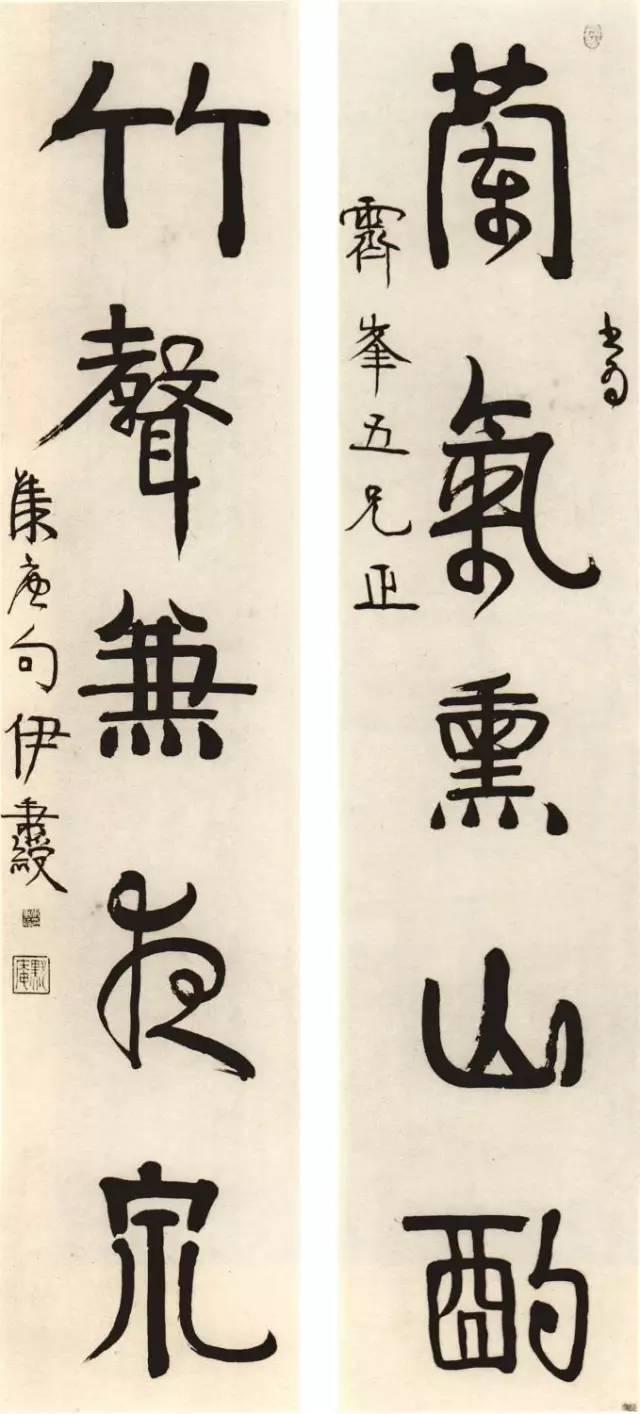 蘭氣熏山酌
書為
霽峯五兄正
竹聲兼夜泉
集唐句伊秉綬
默庵